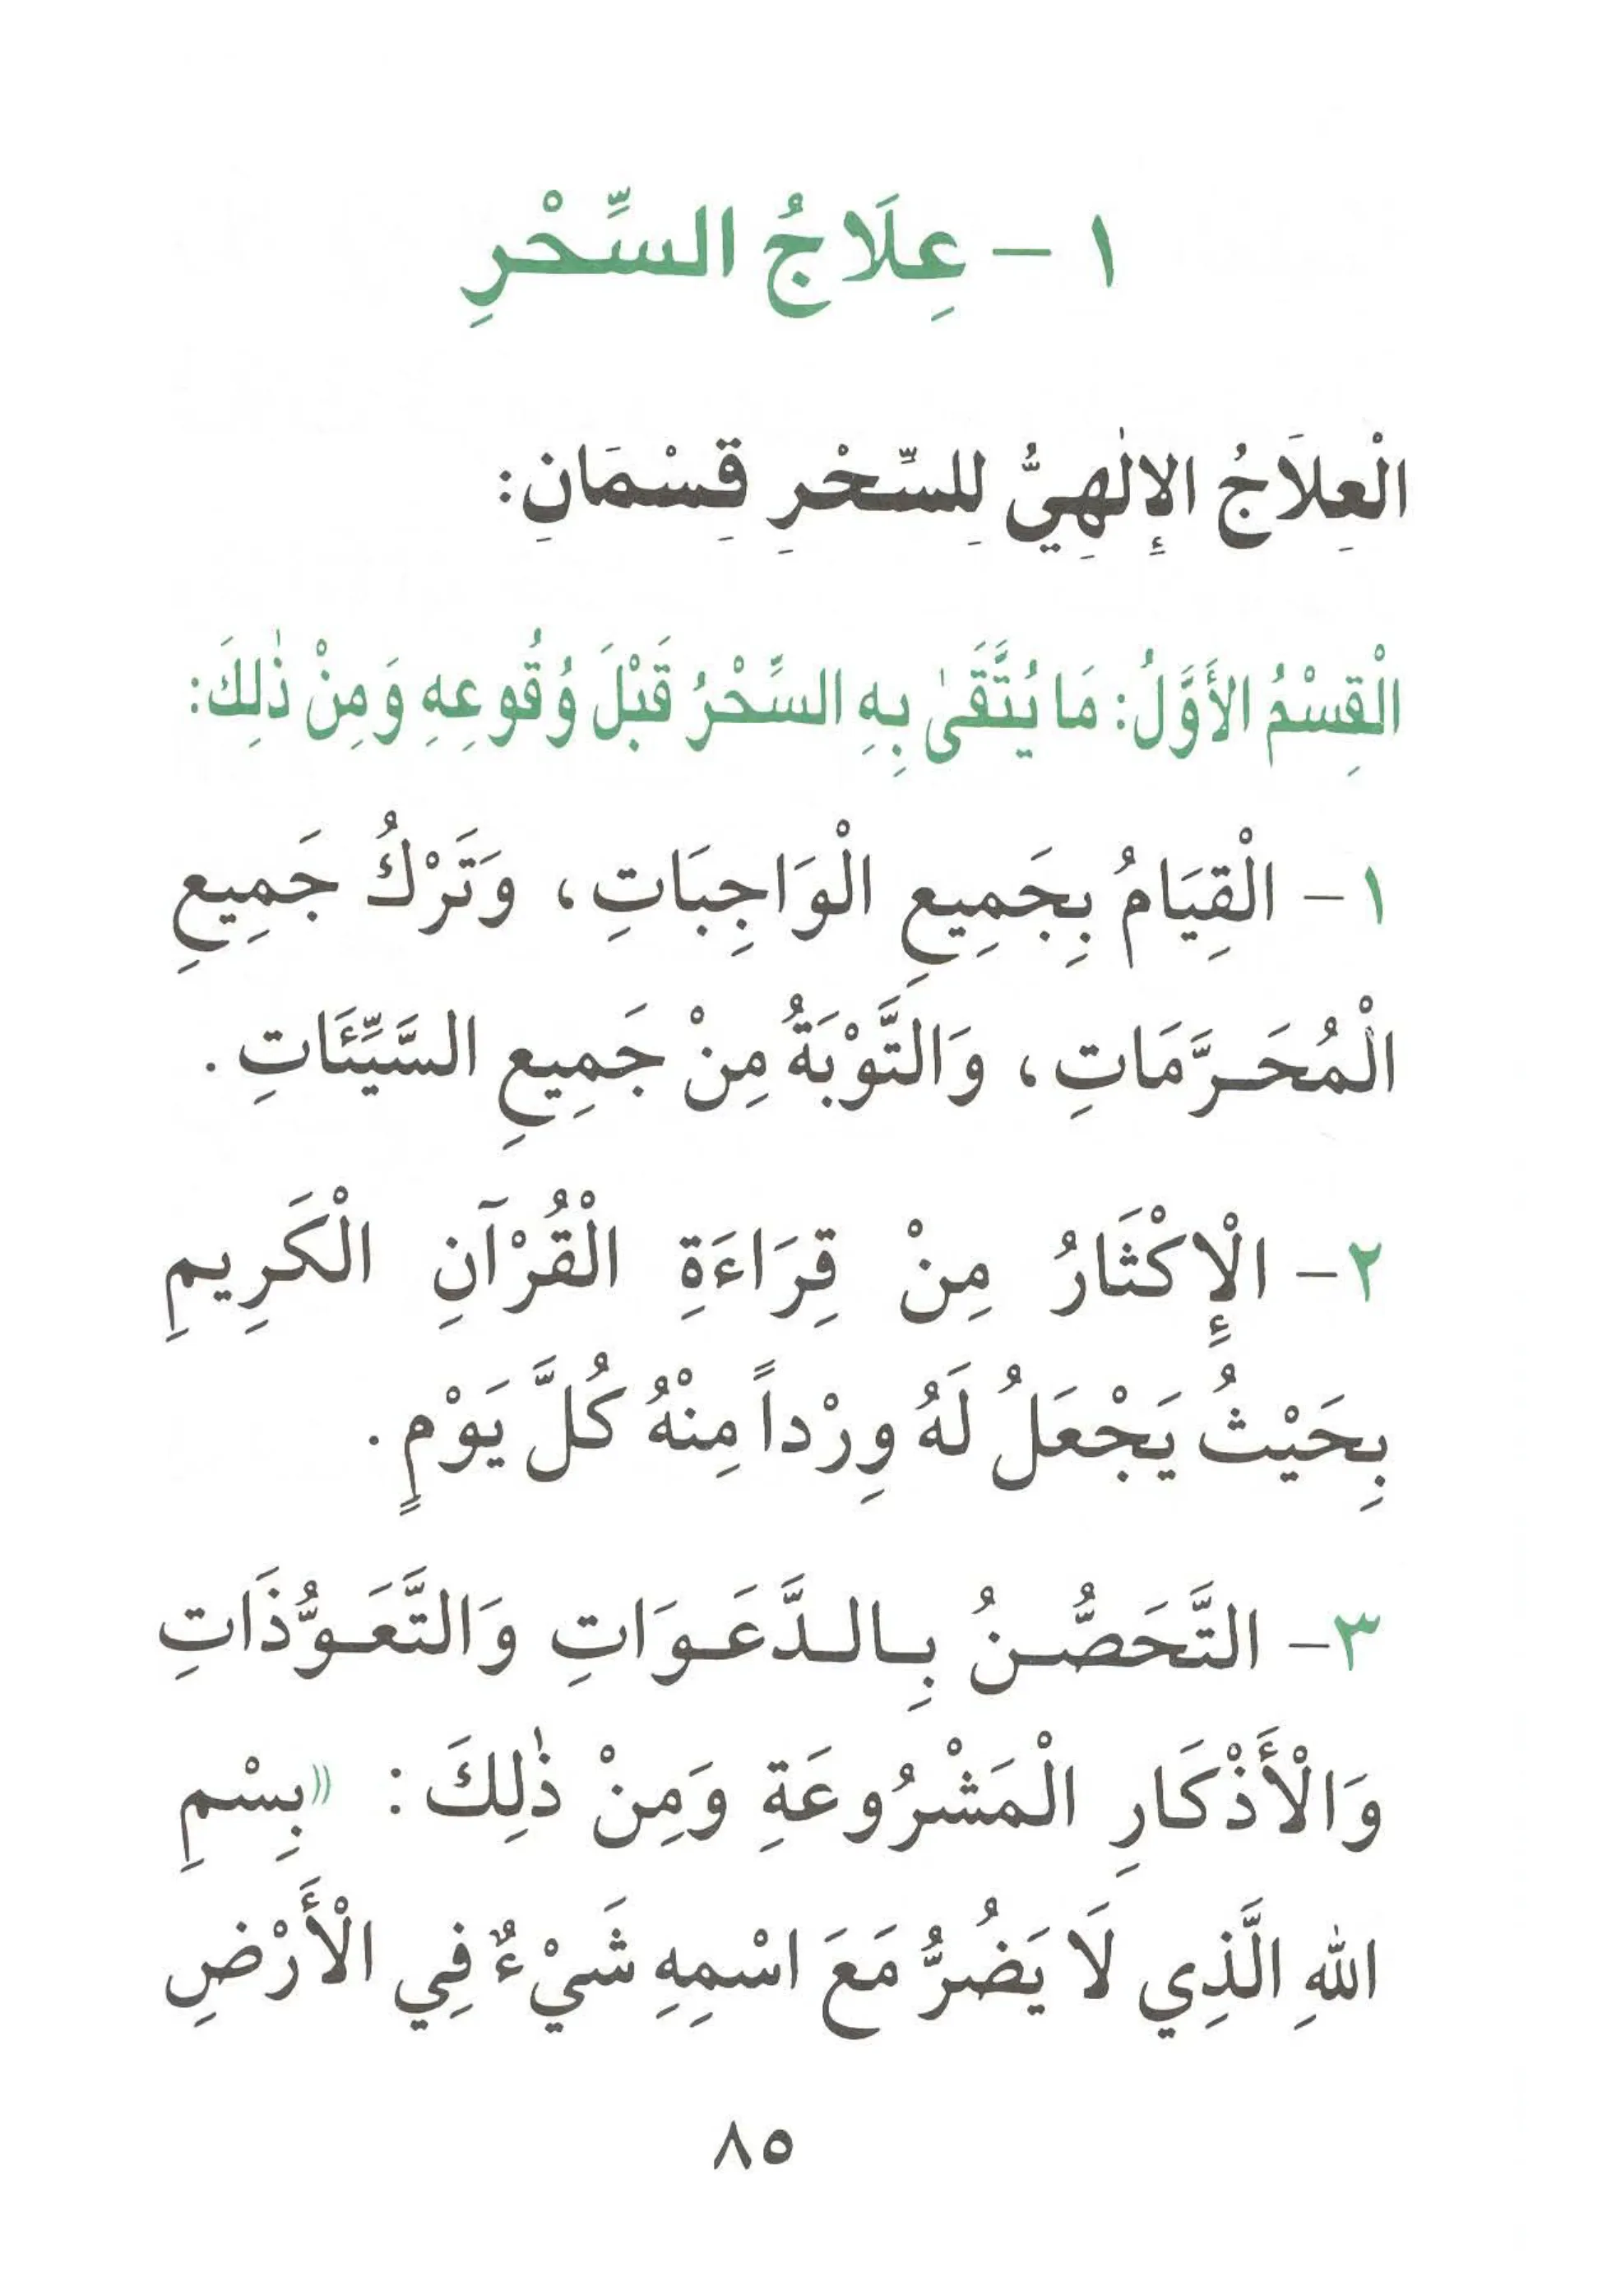 ١ - عِلَاجُ السِّحْرِ
الْعِلاَجُ الإِلٰهِيُّ لِلسِّحْرِ قِسْمَانِ:
الْقِسْمُ الأَوَّلُ: مَا يُتَّقَىٰ بِهِ السِّحْرُ قَبْلَ وُقُوعِهِ وَمِنْ ذٰلِكَ:
١ - الْقِيَامُ بِجَمِيعِ الْوَاجِبَاتِ، وَتَرْكُ جَمِيعِ
الْمُحَرَّمَاتِ، وَالتَّوْبَةُ مِنْ جَمِيعِ السَّيِّئَاتِ.
٢ - الْإِكْثَارُ مِنْ قِرَاءَةِ الْقُرْآنِ الْكَرِيمِ
بِحَيْثُ يَجْعَلُ لَهُ وِرْداً مِنْهُ كُلَّ يَوْمٍ.
٣ - التَّحَصُّنُ بِالدَّعَوَاتِ وَالتَّعَوُّذَاتِ
وَالْأَذْكَارِ الْمَشْرُوعَةِ وَمِنْ ذٰلِكَ: «بِسْمِ
اللهِ الَّذِي لَا يَضُرُّ مَعَ اسْمِهِ شَيْءٌ فِي الْأَرْضِ
٨٥